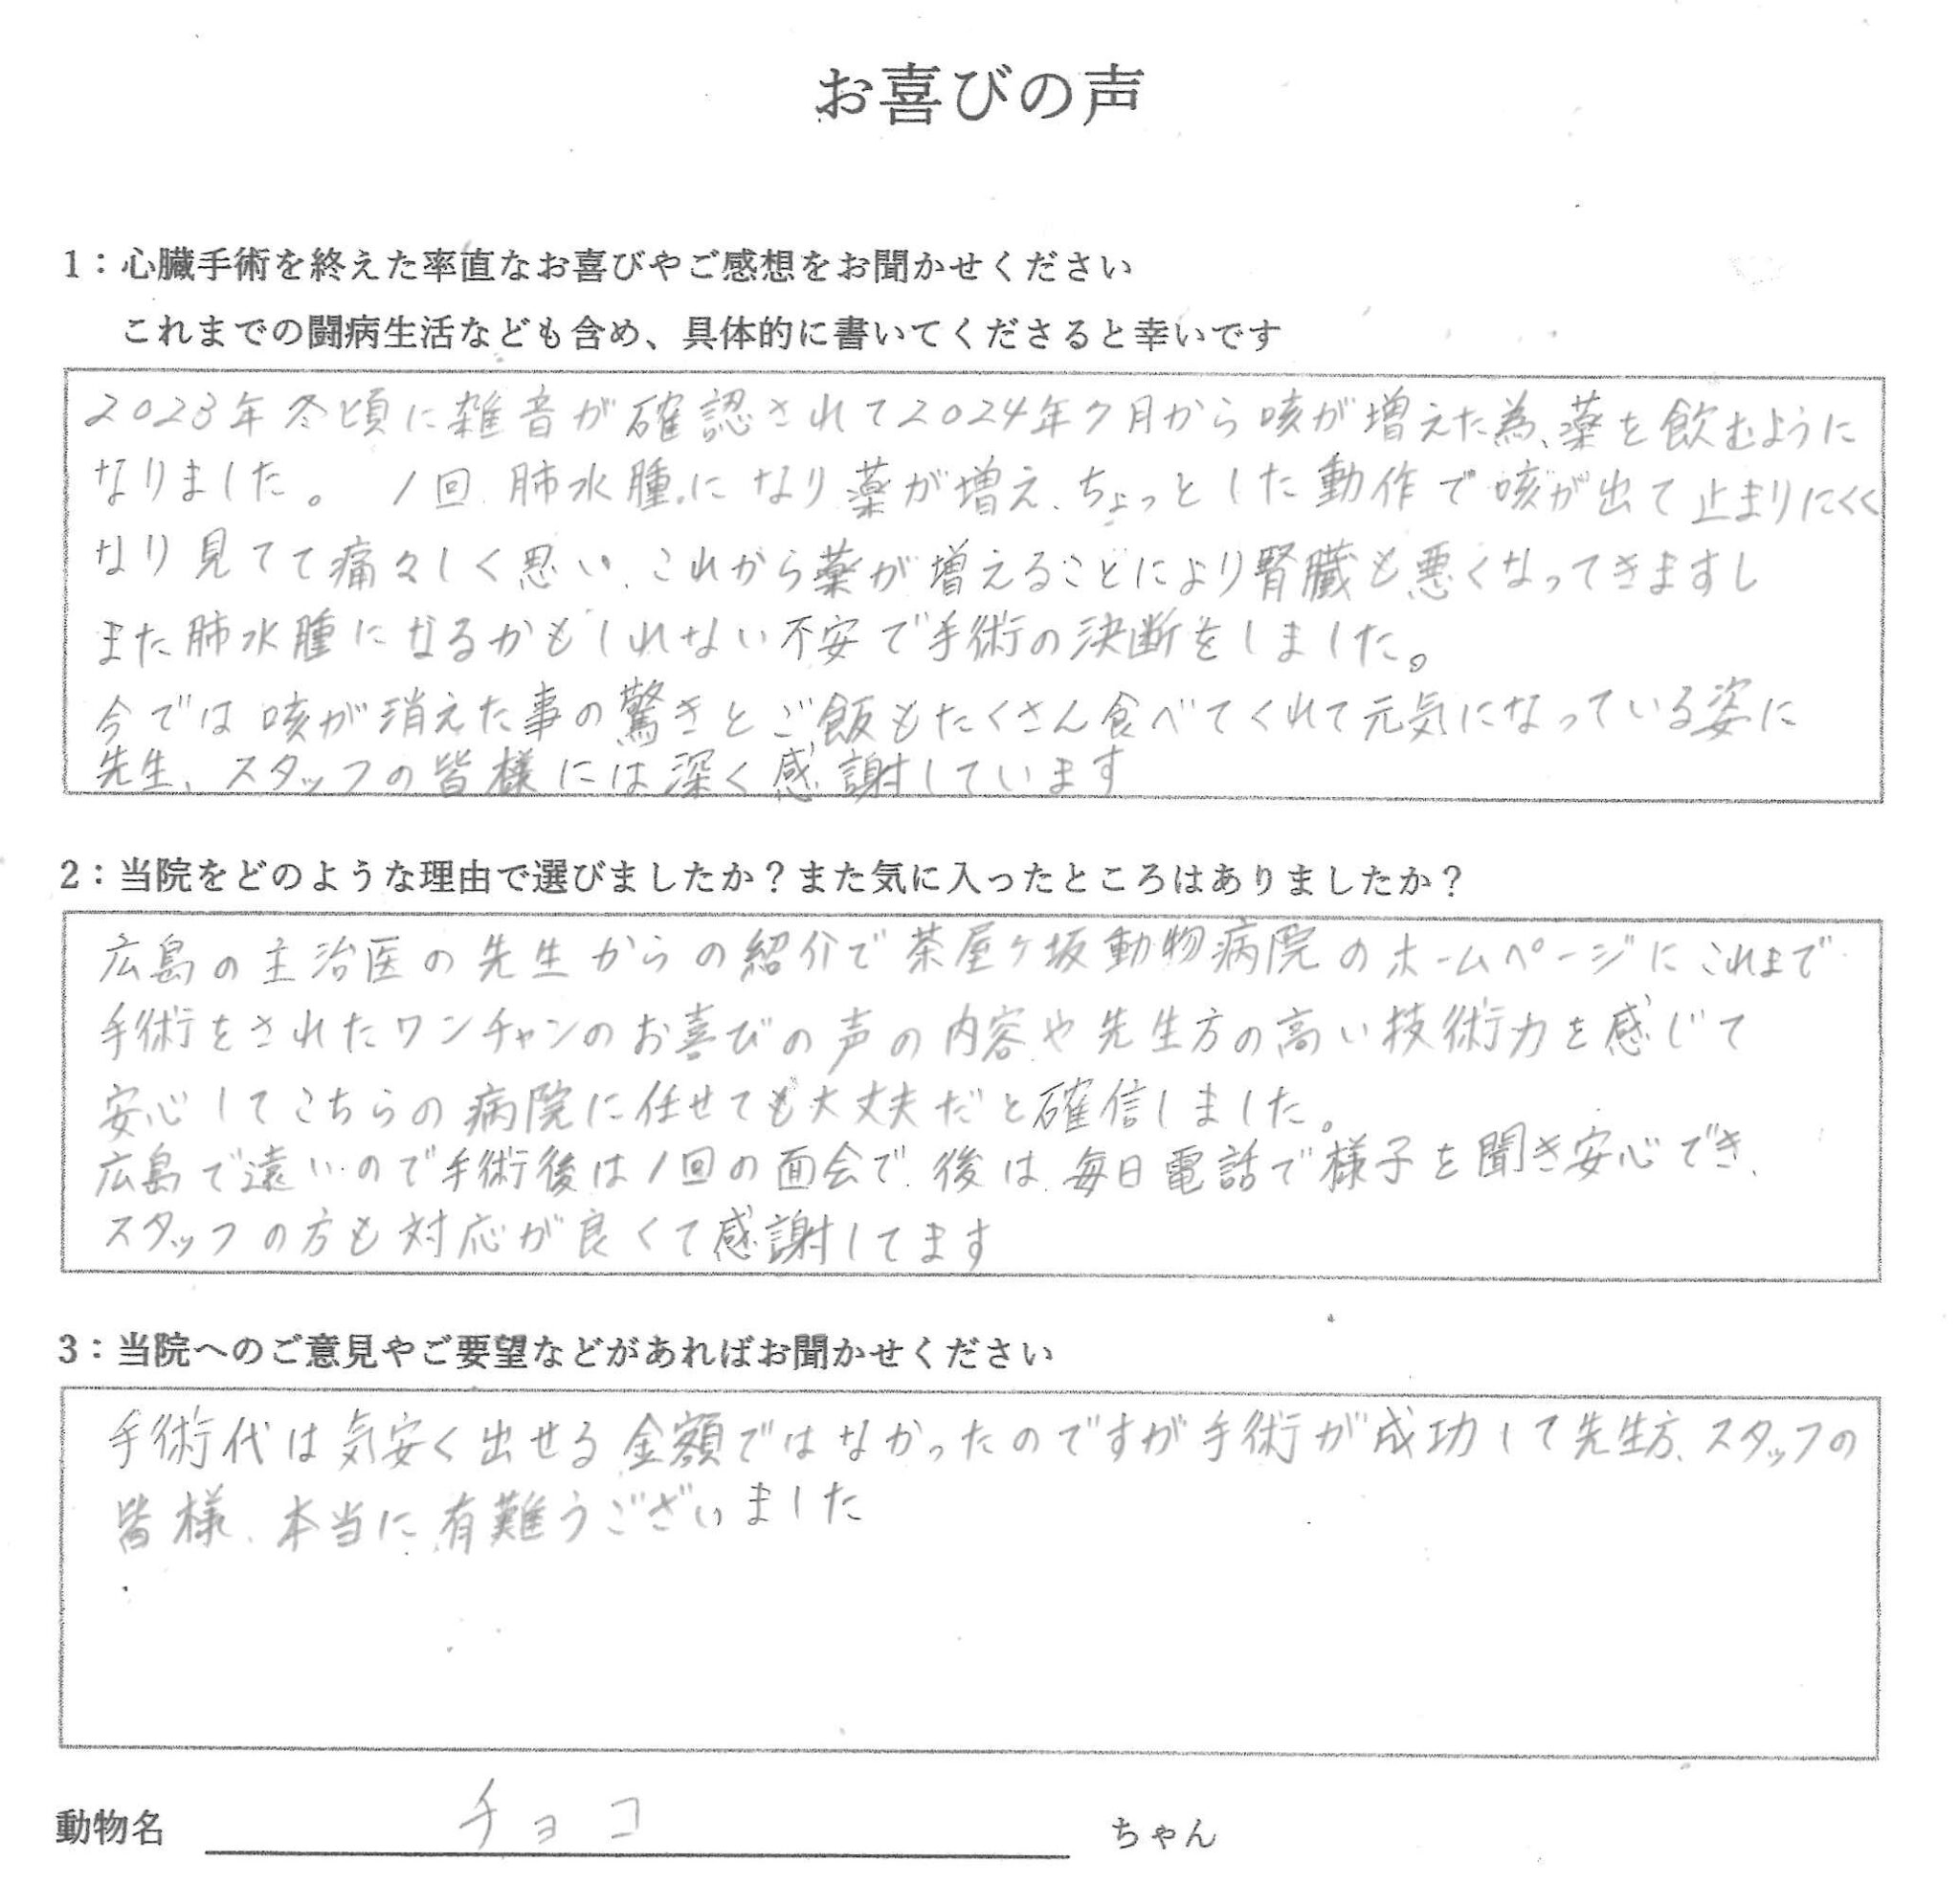 お喜びの声
1：心臓手術を終えた率直なお喜びやご感想をお聞かせください
これまでの闘病生活なども含め、具体的に書いてくださると幸いです
2023年冬頃に雑音が確認されて2024年7月から咳が増えた為、薬を飲むように
なりました。1回、肺水腫になり薬が増え、ちょっとした動作で咳が出て止まりにくく
なり見てて痛々しく思い、これから薬が増えることにより腎臓も悪くなってきますし
また肺水腫になるかもしれない不安で手術の決断をしました。
今では咳が消えた事の驚きとご飯もたくさん食べてくれて元気になっている姿に
先生、スタッフの皆様には深く感謝しています
2：当院をどのような理由で選びましたか？また気に入ったところはありましたか？
広島の主治医の先生からの紹介で茶屋ヶ坂動物病院のホームページにこれまで
手術をされたワンチャンのお喜びの声の内容や先生方の高い技術力を感じて
安心してこちらの病院に任せても大丈夫だと確信しました。
広島で遠いので手術後は1回の面会で、後は毎日電話で様子を聞き安心でき、
スタッフの方も対応が良くて感謝してます
3：当院へのご意見やご要望などがあればお聞かせください
手術代は気安く出せる金額ではなかったのですが手術が成功して先生方、スタッフの
皆様、本当に有難うございました
動物名 チョコ ちゃん